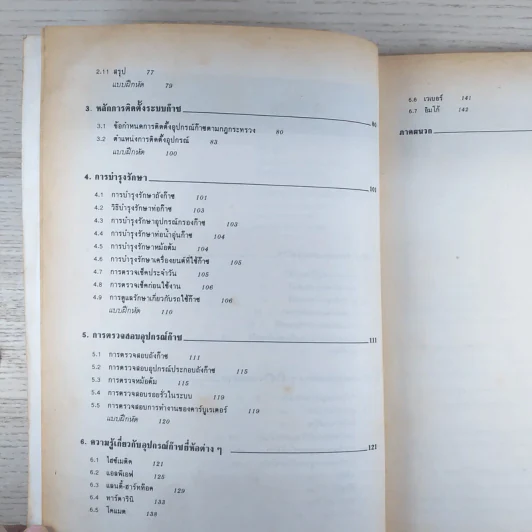 2.11 สรุป 77
แบบฝึกหัด 79
3. หลักการติดตั้งระบบก๊าซ
3.1 ข้อกำหนดการติดตั้งอุปกรณ์ก๊าซตามกฎกระทรวง 80
3.2 ตำแหน่งการติดตั้งอุปกรณ์ 83
แบบฝึกหัด 100
4. การบำรุงรักษา 101
4.1 การบำรุงรักษาถังก๊าซ 101
4.2 วิธีบำรุงรักษาท่อก๊าซ 103
4.3 การบำรุงรักษาอุปกรณ์กรองก๊าซ 103
4.4 การบำรุงรักษาท่อน้ำอุ่นก๊าซ 104
4.5 การบำรุงรักษาหม้อต้ม 104
4.6 การบำรุงรักษาเครื่องยนต์ที่ใช้ก๊าซ 105
4.7 การตรวจเช็คประจำวัน 105
4.8 การตรวจเช็คก่อนใช้งาน 106
4.9 การดูแลรักษาเกี่ยวกับรถใช้ก๊าซ 106
แบบฝึกหัด 110
5. การตรวจสอบอุปกรณ์ก๊าซ 111
5.1 การตรวจสอบถังก๊าซ 111
5.2 การตรวจสอบอุปกรณ์ประกอบถังก๊าซ 115
5.3 การตรวจหม้อต้ม 115
5.4 การตรวจสอบรอยรั่วในระบบ 119
5.5 การตรวจสอบการทำงานของคาร์บูเรเตอร์ 119
แบบฝึกหัด 120
6. ความรู้เกี่ยวกับอุปกรณ์ก๊าซยี่ห้อต่าง ๆ 121
6.1 ไฮซ์เมติค 121
6.2 แอลพีเอฟ 125
6.3 แลนดี้-ฮาร์ทท็อค 129
6.4 ทาร์ตารินี 133
6.5 โคแมต 138
6.6 เวเบอร์ 141
6.7 อิมโก้ 143
ภาคผนวก